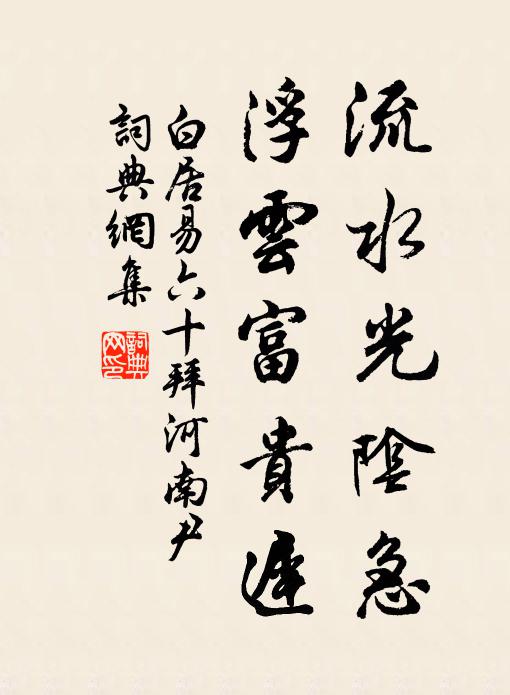 流水光陰急
浮雲富貴遲
白居易六十拜河南尹
詞典網集
詞典網印